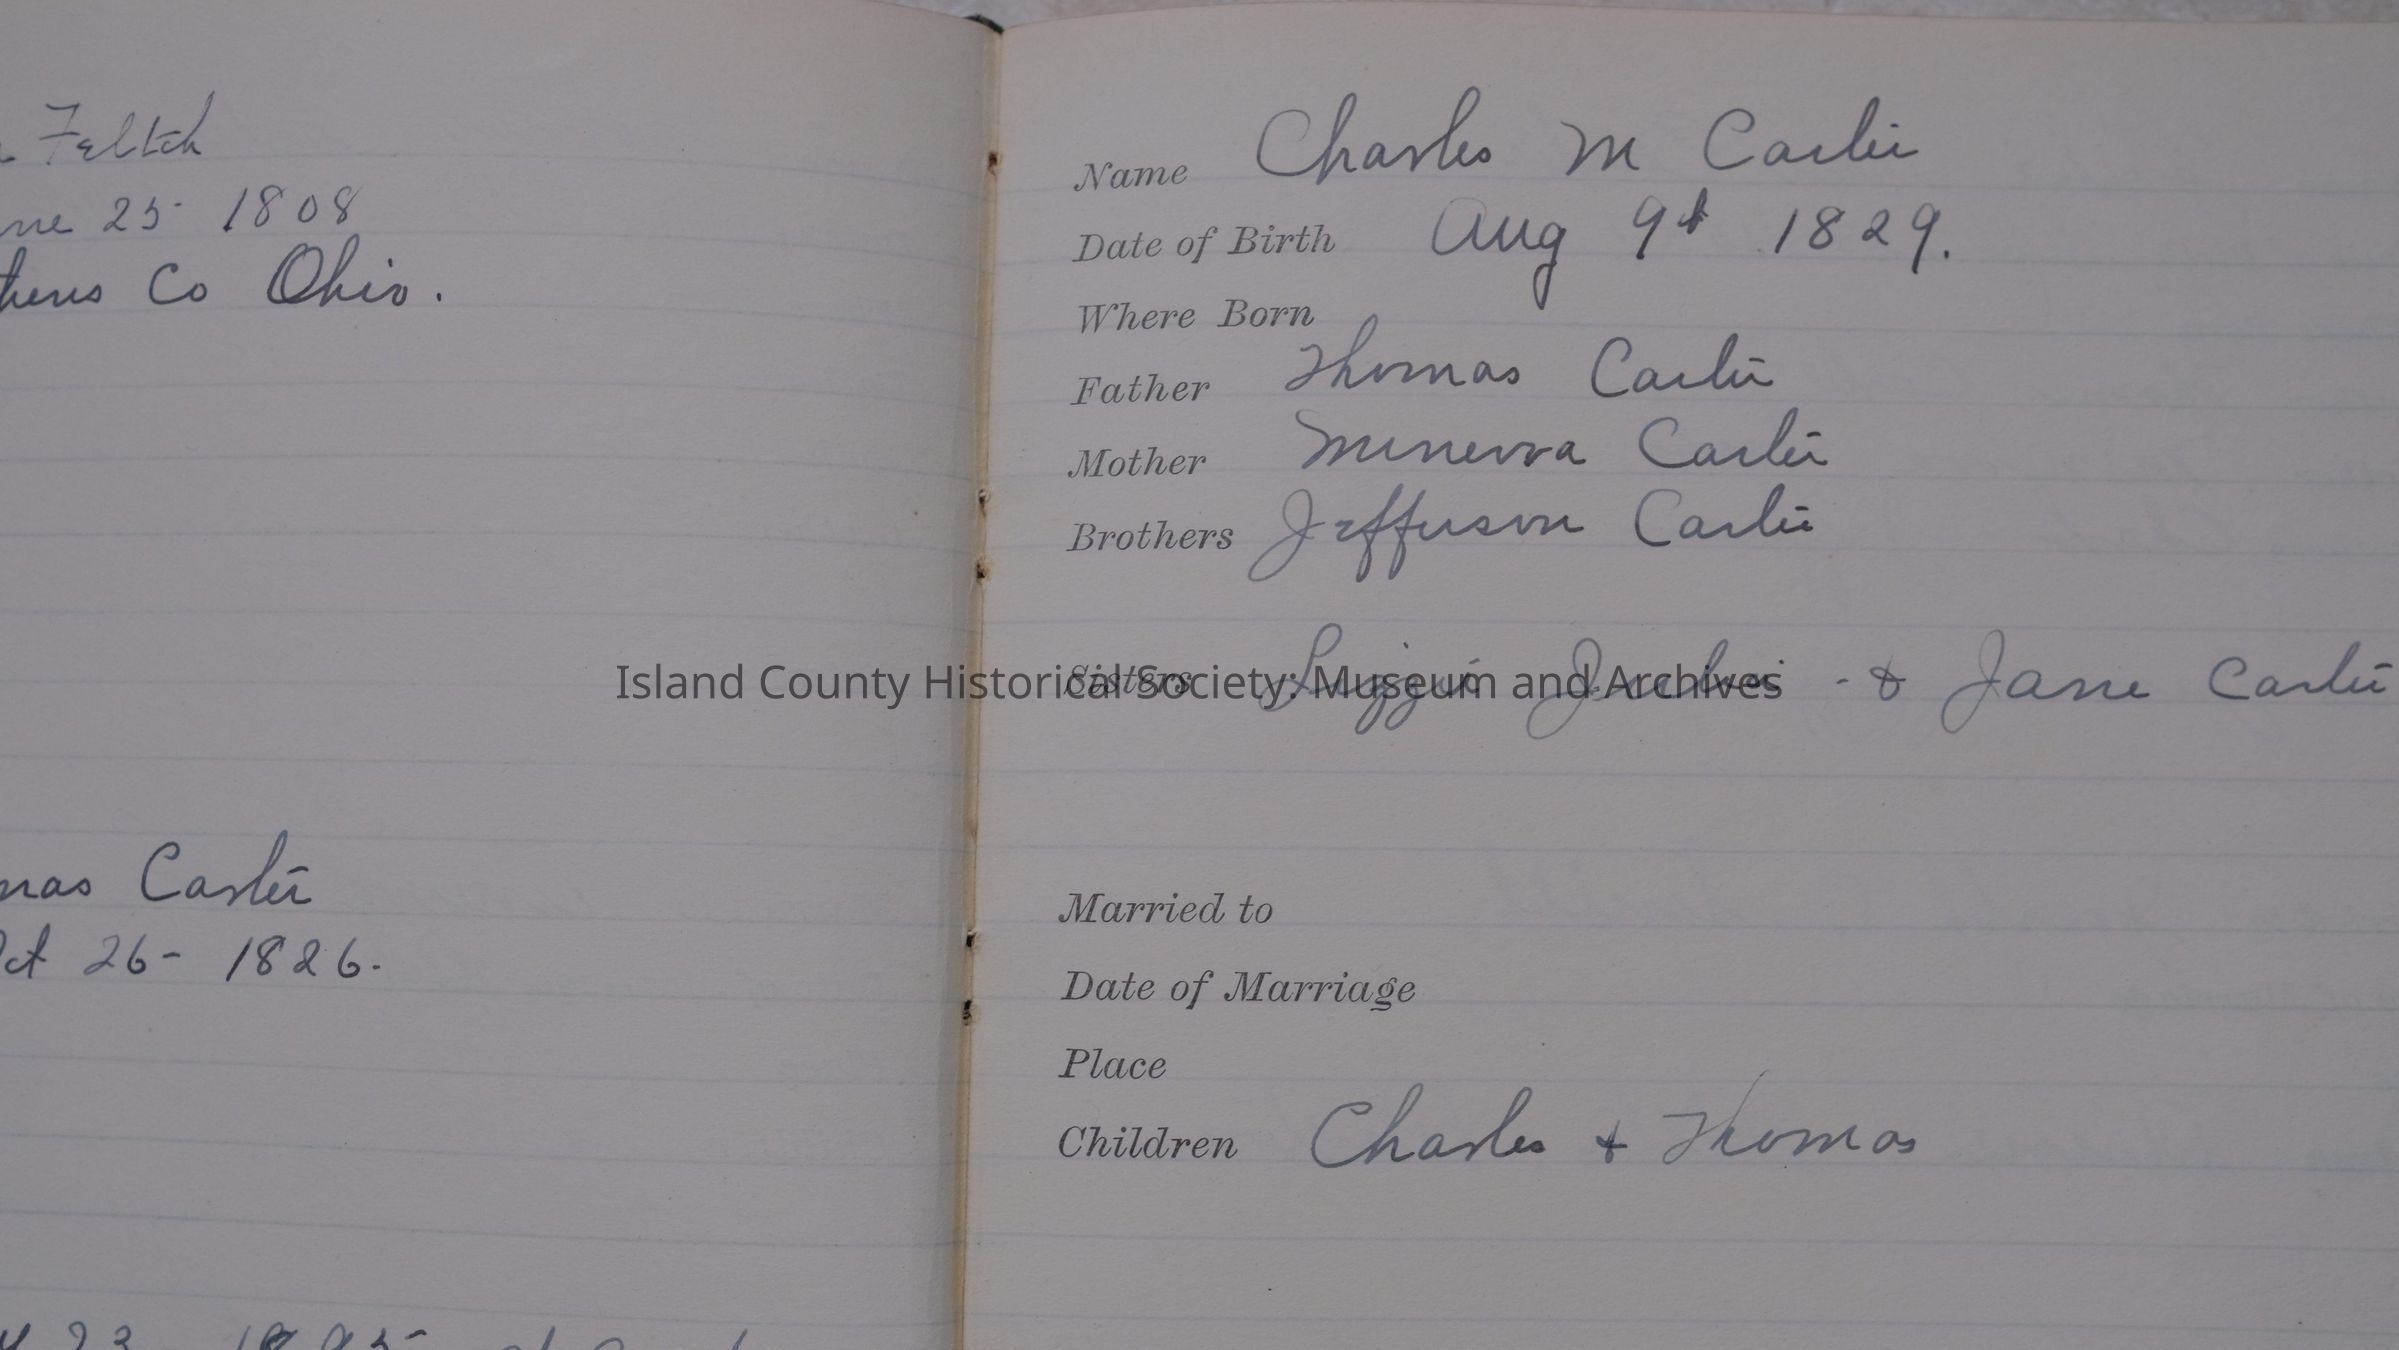 Feltch
ne 25 1808
hens Co Ohio.
mas Carter
Oct 26- 1826.
23 1895
Name Charles M Carter
Date of Birth Aug 9t 1829.
Where Born
Father Thomas Carter
Mother Minerva Carter
Brothers Jefferson Carter
Sisters Lizzie & Jane Carter
Island County Historical Society: Museum and Archives
Married to
Date of Marriage
Place
Children Charles & Thomas